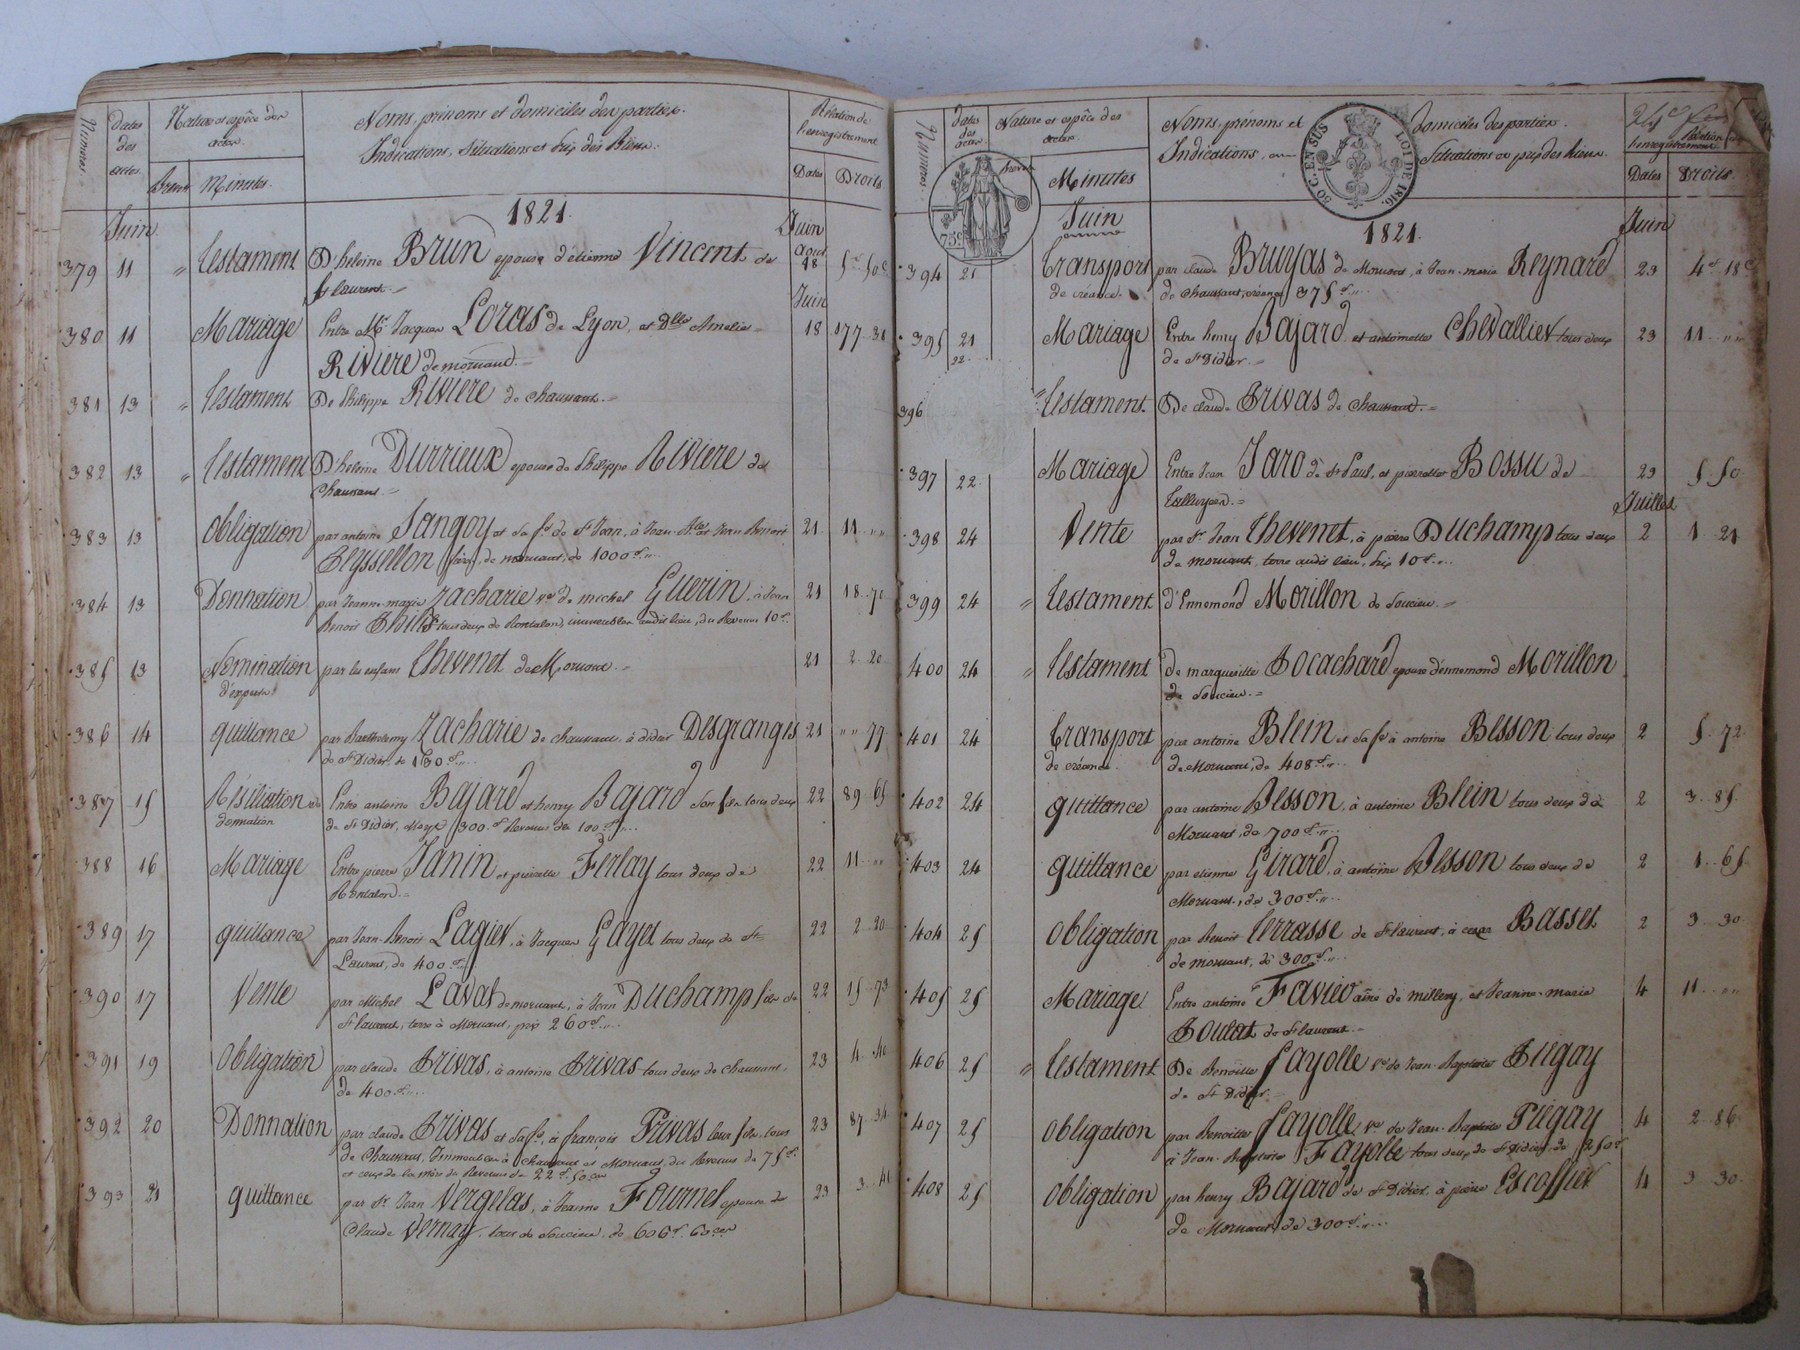 Numéros
dates des actes
Nature et espèce des actes
Brevets Minutes.
Noms, prénoms et domiciles des parties.
Indications, Situations et Prix des Biens.
Rélation de l'enregistrement
Dates Droits
1821.
Juin Juin
Aout
379 11 " Testament D'heleine Brun epouse d'étienne Vincent de 28 5f 50c
St Laurent. =
Juin
380 11 Mariage Entre Mr. Jacques Loras de Lyon, et Dlle Amelie = 18 177 31
Riviere de mornant. =
381 13 " Testament De Philippe Riviere de chaussant. =
382 13 " Testament D'heleine Durrieux epouse de Philippe Riviere de
Chaussant =
383 13 Obligation par antoine Jangoy et sa fe de St Jean, à Jean Bte et Jean Benoit 21 11 "
Peyssellon freres, de mornant, de 1000f "
384 13 Donnation par Jeanne-marie Zacharie ve de michel Guerin, à Jean 21 18 71
Benoit Thill tous deux de Rontalon, immeubles audit lieu, du Revenu 10f.
385 13 Nomination par les enfans Thevenet de Mornant = 21 2 20
d'experts
386 14 quittance par Barthelemy Zacharie de chaussant, à didier Desgranges 21 " 77
de St Didier, de 130f "
387 15 Résiliation de Entre antoine Bajard et henry Bajard son fils tous deux 22 89 65
donnation de St Didier, 300f Revenu de 100f "
388 16 Mariage Entre pierre Janin et pierrette Ferlay tous deux de 22 11 "
Rontalon. =
389 17 quittance par Jean-Benoit Lagier, à Jacques Gayet tous deux de St 22 2 20
Laurent, de 400f "
390 17 Vente par Michel Lavat de mornant, à Jean Duchamp fils de 22 15 73
St Laurent, terre à Mornant, prix 260f "
391 19 Obligation par claude Privas, à antoine Privas tous deux de chaussant, 23 4 40
de 400f "
392 20 Donnation par claude Privas et sa fe, à françois Privas leur fils, tous 23 87 34
de Chaussant, Immeubles à chaussant et Mornant, du Revenu de 75f
et ceux de la mère du Revenu de 22f 50ces
393 21 quittance par Sr. Jean Vergelas, à Jeanne Fournel epouse de 23 3 41
Claude Vernay, tous de Soucieu, de 606f. 60ces
Numéros
dates des actes
Nature et espèce des actes
Brevets Minutes
Noms, prénoms et domiciles des parties.
Indications, Situations et prix des biens.
Rélation de l'enregistrement
Dates Droits
75c
50 C. EN SUS LOI DE 1816.
Juin 1821. Juin
394 21 Transport par claude Bruyas de Mornant, à Jean-marie Reynard 23 4f 18c
de créance. de chaussant, créance 375f "
395 21 Mariage Entre henry Bajard et antoinette Chevallier tous deux 23 11 "
22 de St Didier. =
396 " Testament De claude Privas de Chaussant. =
397 22 Mariage Entre Jean Jaro de St Paul, et pierrette Bossu de 23 5 50
Talluyers. =
Juillet
398 24 Vente par Sr. Jean Thevenet, à pierre Duchamp tous deux 2 1 21
de mornant, terre audit lieu, Prix 10f "
399 24 " Testament d'Ennemond Morillon de Soucieu. =
400 24 " Testament de marguerite Bocachard epouse d'ennemond Morillon
de Soucieu. =
401 24 Transport par antoine Blein et sa fe à antoine Besson tous deux 2 5 72
de créance de Mornant, de 408f "
402 24 quittance par antoine Besson, à antoine Blein tous deux de 2 3 85
Mornant, de 700f "
403 24 quittance par etienne Girard, à antoine Besson tous deux de 2 1 65
Mornant, de 300f "
404 25 Obligation par Benoit Terrasse de St laurent, à cesar Basset 2 3 30
de mornant, de 300f "
405 25 Mariage Entre antoine Favier ainé de millery, et Jeanne-marie 4 11 "
Boulat de St laurent =
406 25 " Testament De Benoitte Fayolle ve de Jean-Baptiste Frigay
de St Didier.
407 25 Obligation par Benoitte Fayolle, ve de Jean-Baptiste Frigay 4 2 86
à Jean-Baptiste Fayolle tous deux de St didier, de 250f
408 25 Obligation par henry Bajard de St Didier, à pierre Escoffier 4 3 30
de Mornant, de 300f "